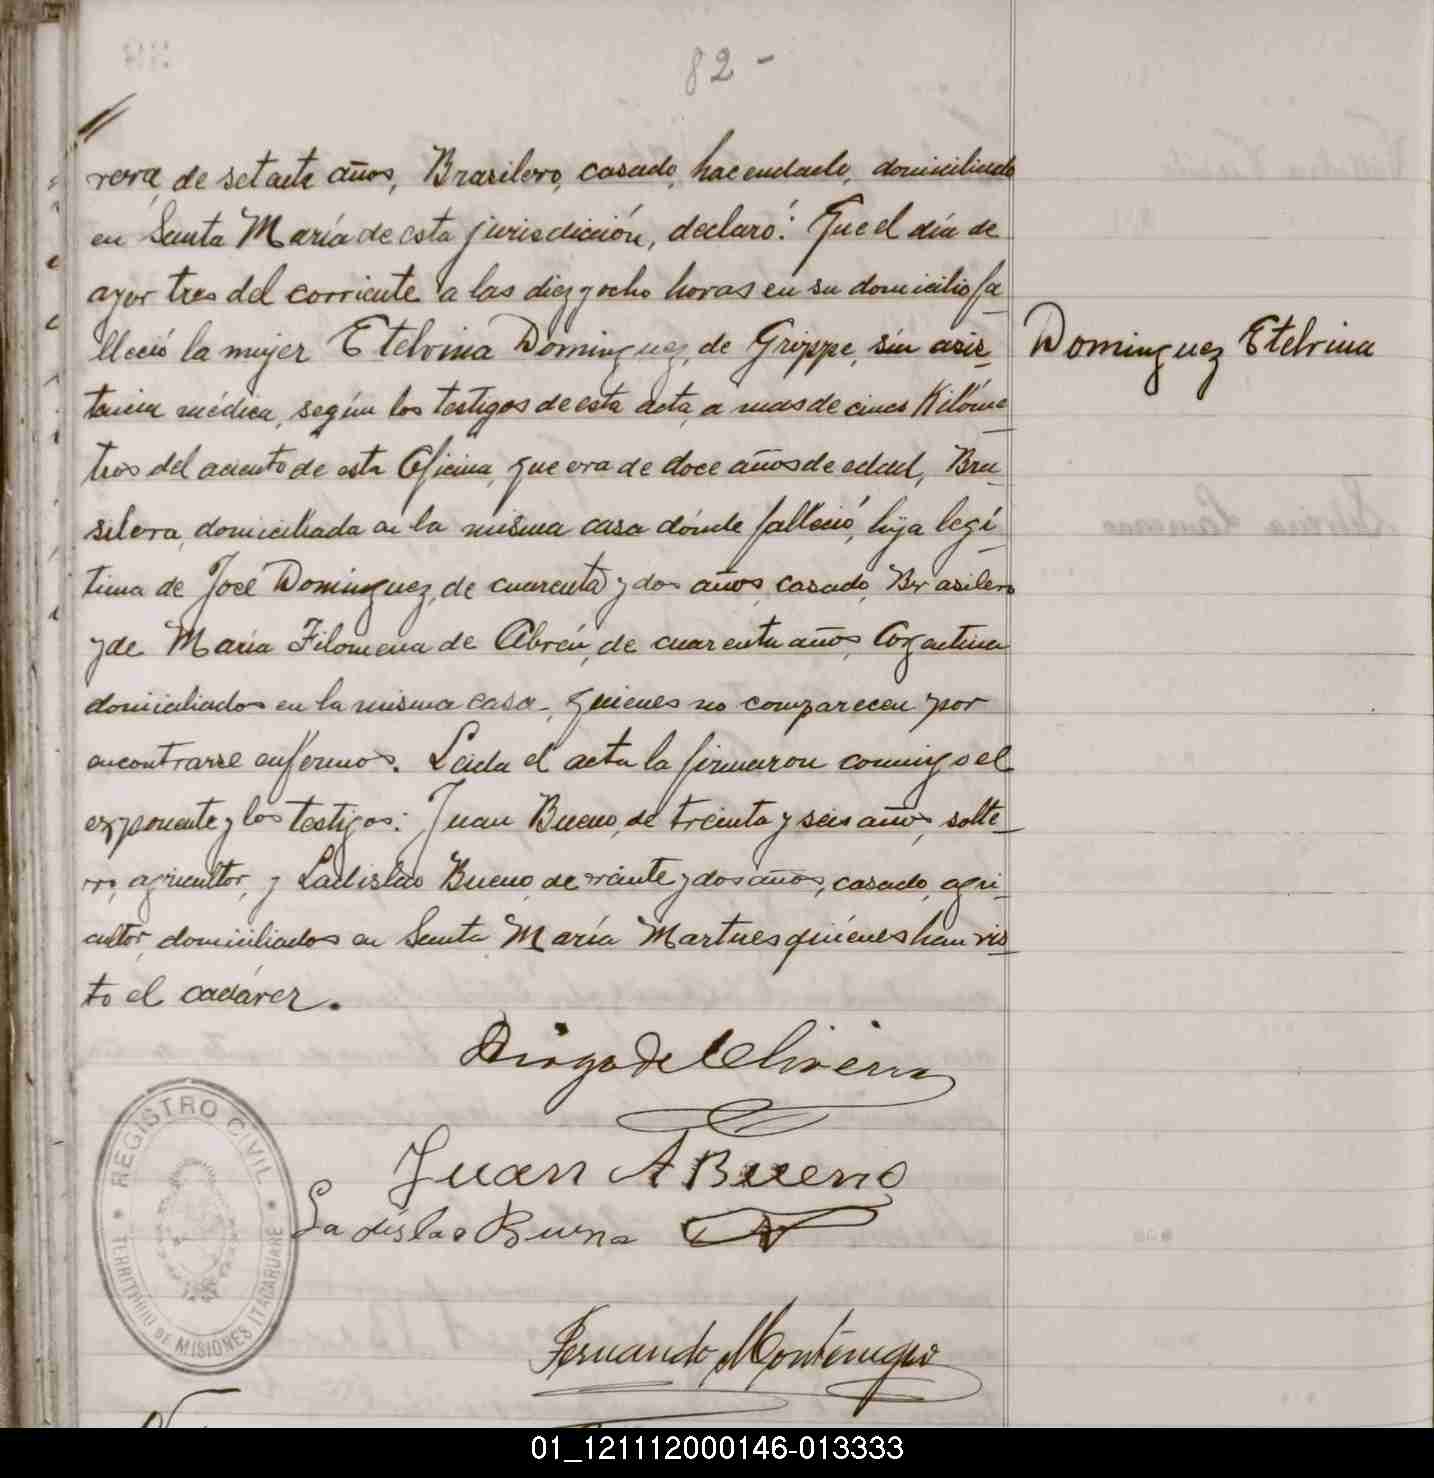 82-
rera, de setaeta años, Brasilero, casado, hacendado, domiciliado
en Santa María de esta jurisdicción, declaró: Que el día de
ayer tres del corriente a las diez y ocho horas en su domicilio fa
lleció la mujer Etelvina Dominguez, de Grippe, sin asis-
Dominguez Etelvina
tencia médica, según los testigos de esta acta, a mas de cinco Kilóme-
tros del aciento de esta Oficina, que era de doce años de edad, Bra-
silera, domiciliada en la misma casa dónde falleció, hija legí-
tima de José Dominguez, de cuarenta y dos años, casado, Brasilero
y de María Filomena de Abréu, de cuarenta años, Argentina
domiciliados en la misma casa, quienes no comparecen por
encontrarse enfermos. Leida el acta la firmaron conmigo el
exponente y los testigos: Juan Bueno, de treinta y seis años, solte-
ro, agricultor, y Ladislao Bueno, de viente y dos años, casado, agri-
cultor, domiciliados en Santa María Martires quiénes han vis-
to el cadáver.
de Oliveira
Juan A Bueno
Ladislao Bueno
REGISTRO CIVIL
TERRITORIO DE MISIONES ITACARUARÉ
Fernando Montenegro
01_121112000146-013333